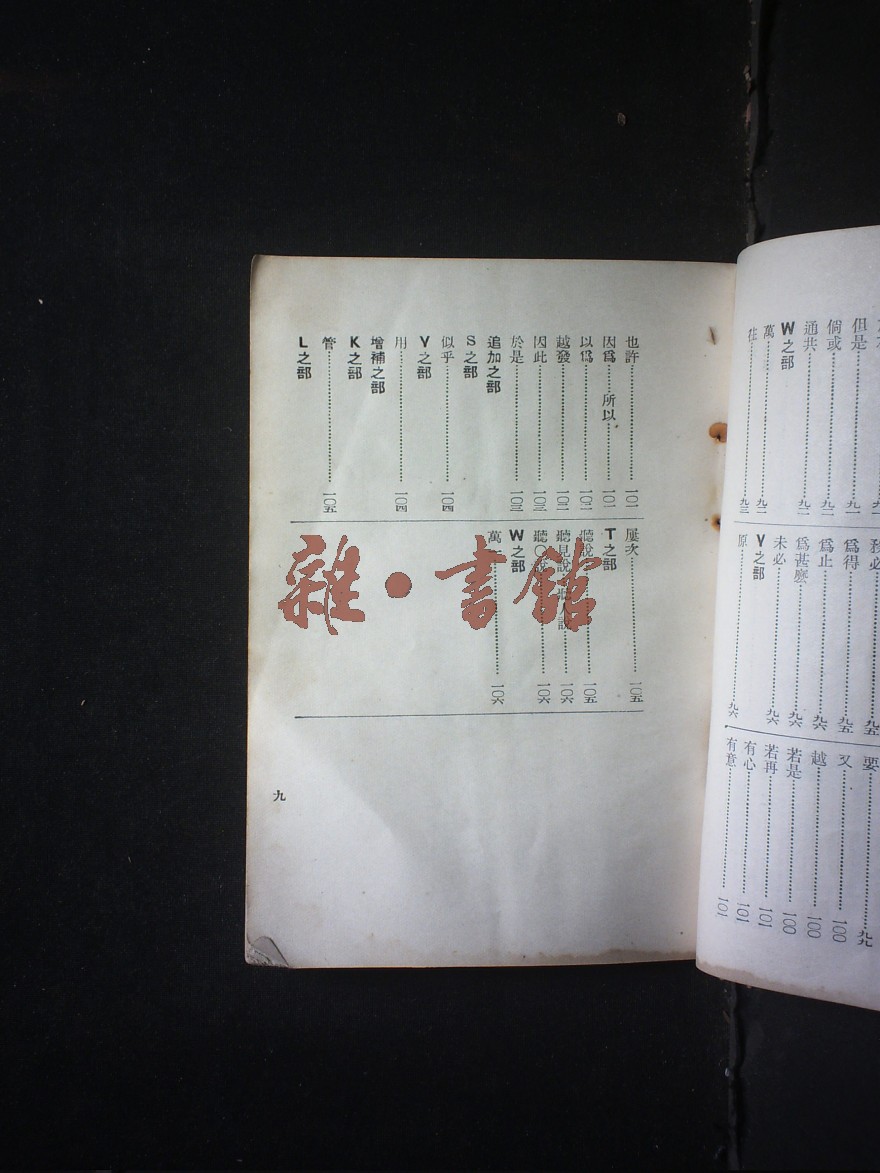 但是……九一
倘或……九一
通共……九一
W之部
萬……九二
務必……九五
爲得……九五
爲止……九六
爲甚麽……九六
未必……九六
Y之部
原……九六
要……九九
又……一〇〇
越……一〇〇
若是……一〇〇
若再……一〇一
有心……一〇一
有意……一〇一
也許……一〇一
因爲……所以……一〇一
以爲……一〇二
越發……一〇二
因此……一〇三
於是……一〇三
追加之部
S之部
似乎……一〇四
Y之部
用……一〇四
增補之部
K之部
管……一〇五
L之部
屢次……一〇五
T之部
聽說……一〇五
聽見說……聽人說……一〇六
聽〇說……一〇六
W之部
萬一……一〇六
九
雜·書館